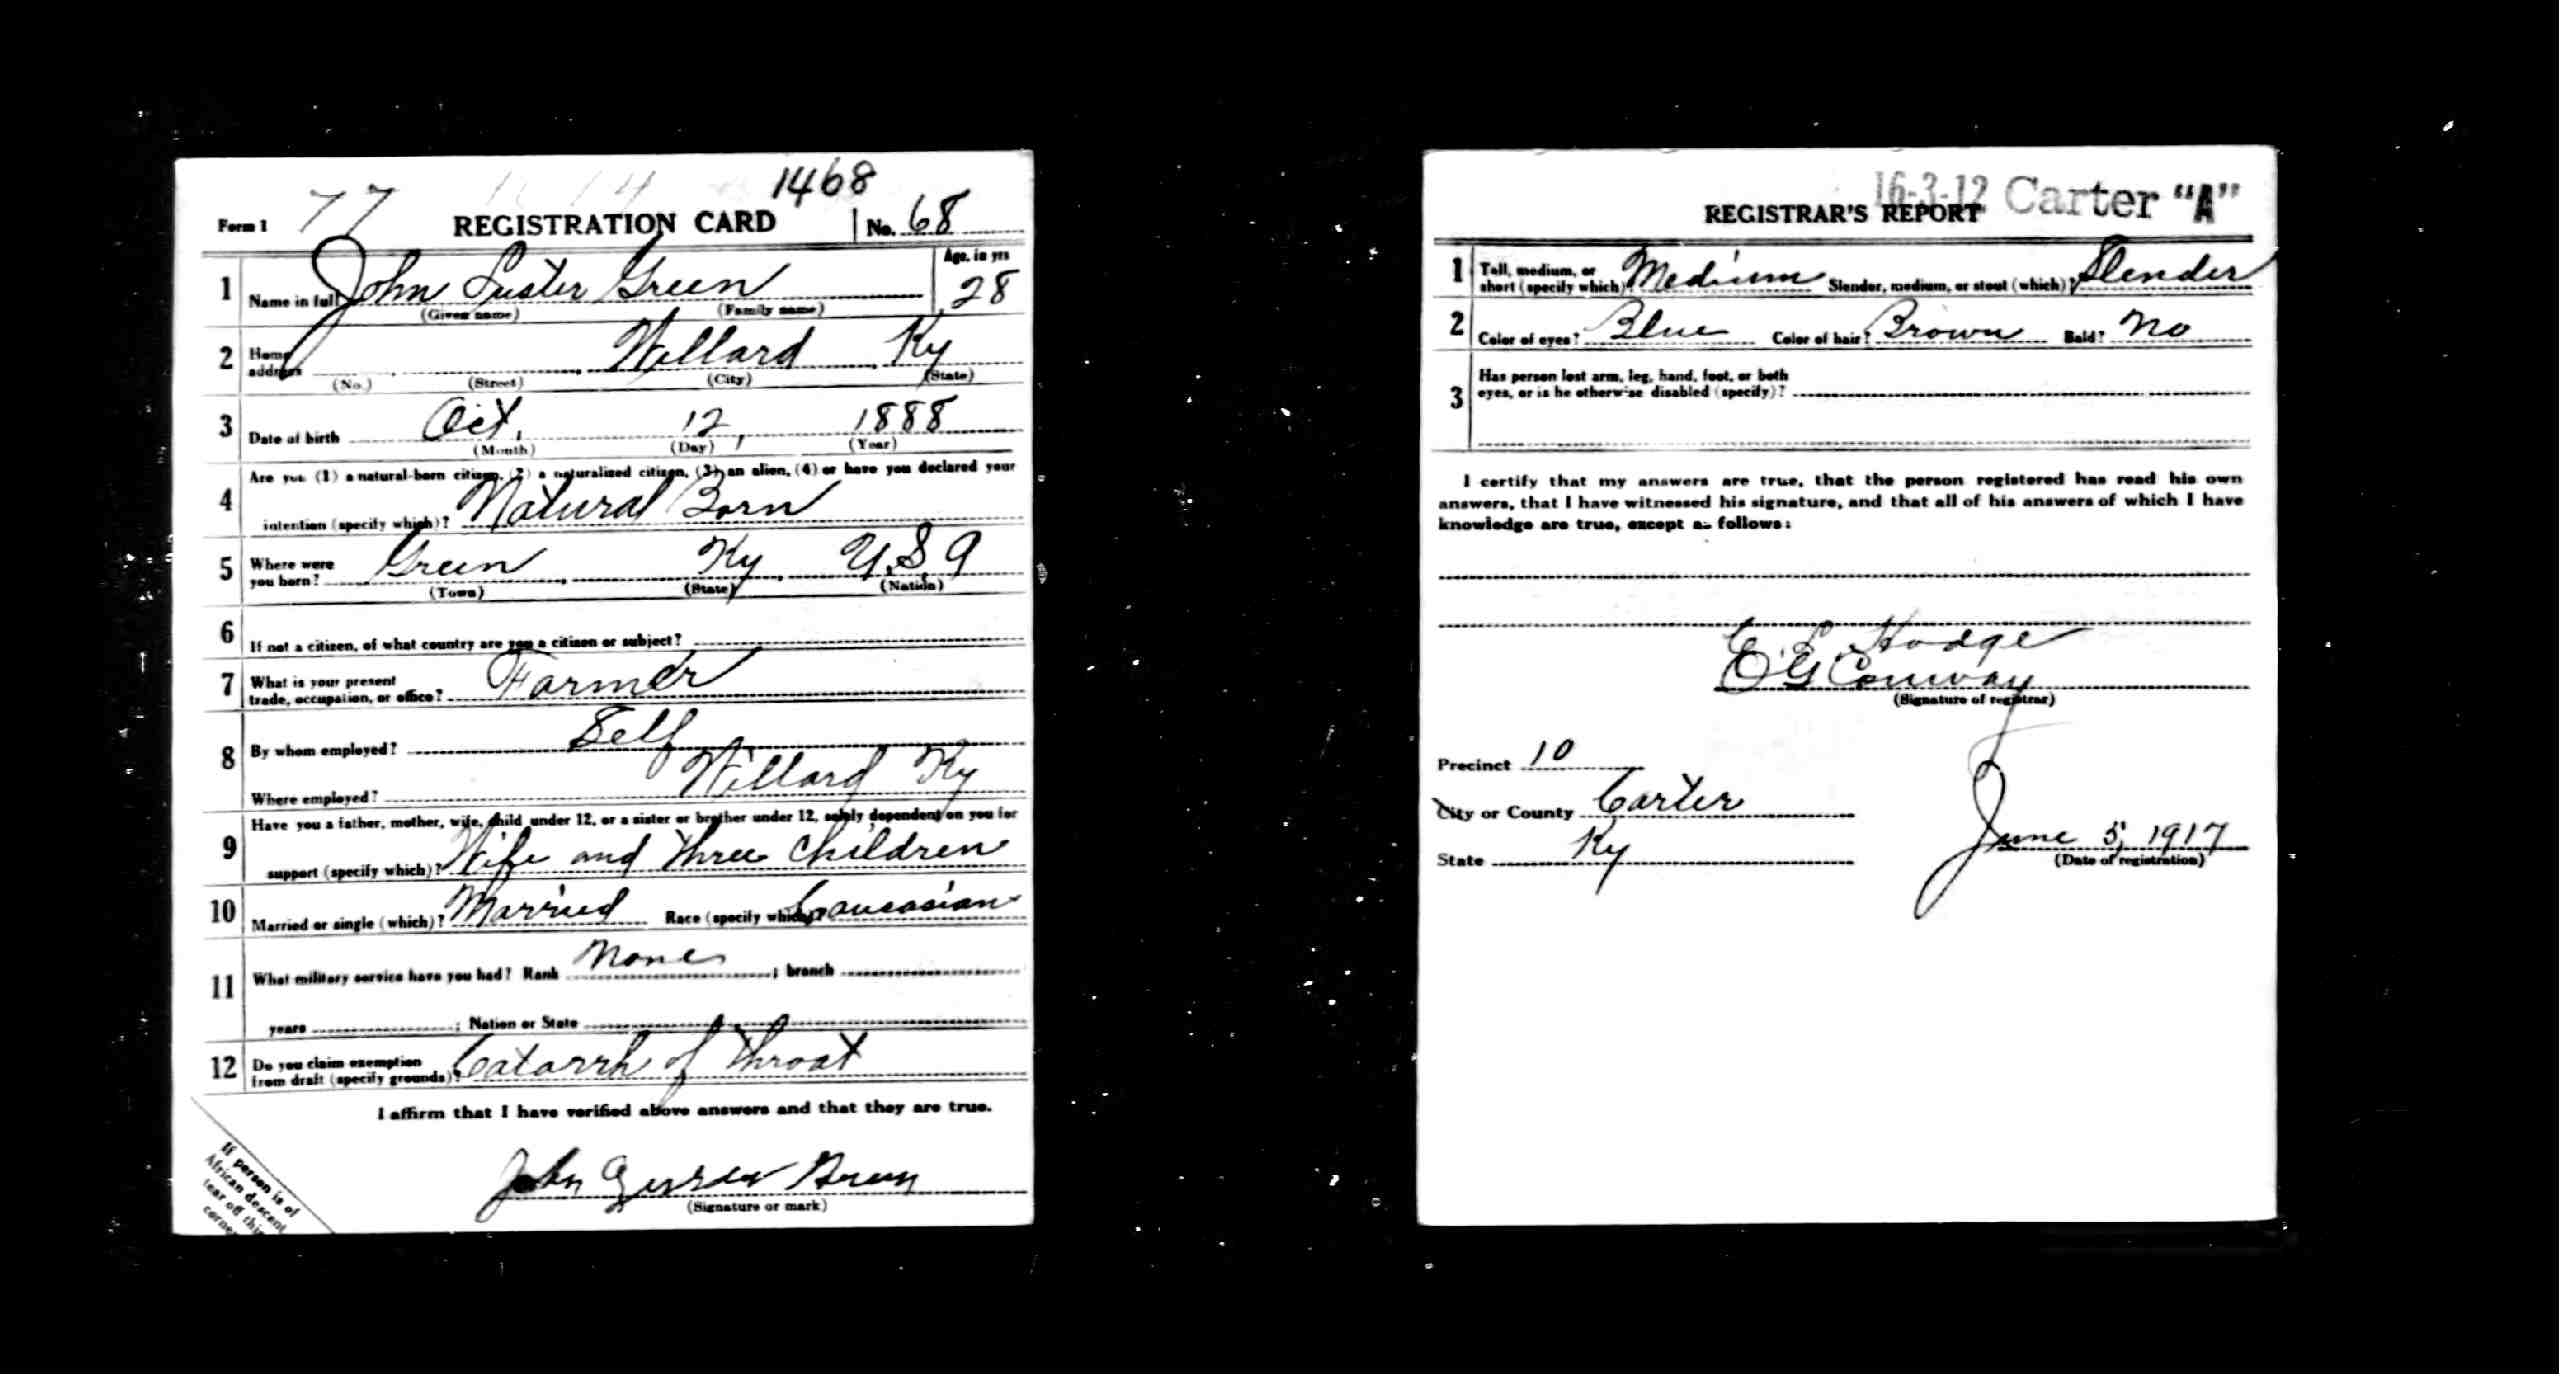 1468
Form 1 77 REGISTRATION CARD No. 68
1 Name in full John Luster Green Age, in yrs 28
(Given name) (Family name)
2 Home address Willard Ky
(No.) (Street) (City) (State)
3 Date of birth Oct, 12, 1888
(Month) (Day) (Year)
4 Are you (1) a natural-born citizen, (2) a naturalized citizen, (3) an alien, (4) or have you declared your
intention (specify which)? Natural Born
5 Where were you born? Green Ky U.S.A
(Town) (State) (Nation)
6 If not a citizen, of what country are you a citizen or subject?
7 What is your present trade, occupation, or office? Farmer
8 By whom employed? Self
Where employed? Willard Ky
9 Have you a father, mother, wife, child under 12, or a sister or brother under 12, solely dependent on you for
support (specify which)? Wife and three children
10 Married or single (which)? Married Race (specify which)? Caucasian
11 What military service have you had? Rank None ; branch
years ; Nation or State
12 Do you claim exemption from draft (specify grounds)? Catarrh of throat
I affirm that I have verified above answers and that they are true.
John Green
(Signature or mark)
If person is of
African descent
tear off this
corner
16-3-12 Carter "A"
REGISTRAR'S REPORT
1 Tall, medium, or short (specify which)? Medium Slender, medium, or stout (which)? Slender
2 Color of eyes? Blue Color of hair? Brown Bald? No
3 Has person lost arm, leg, hand, foot, or both
eyes, or is he otherwise disabled (specify)?
I certify that my answers are true, that the person registered has read his own
answers, that I have witnessed his signature, and that all of his answers of which I have
knowledge are true, except as follows:
E. L. Hodge
E G Conway
(Signature of registrar)
Precinct 10
City or County Carter
State Ky
June 5, 1917
(Date of registration)